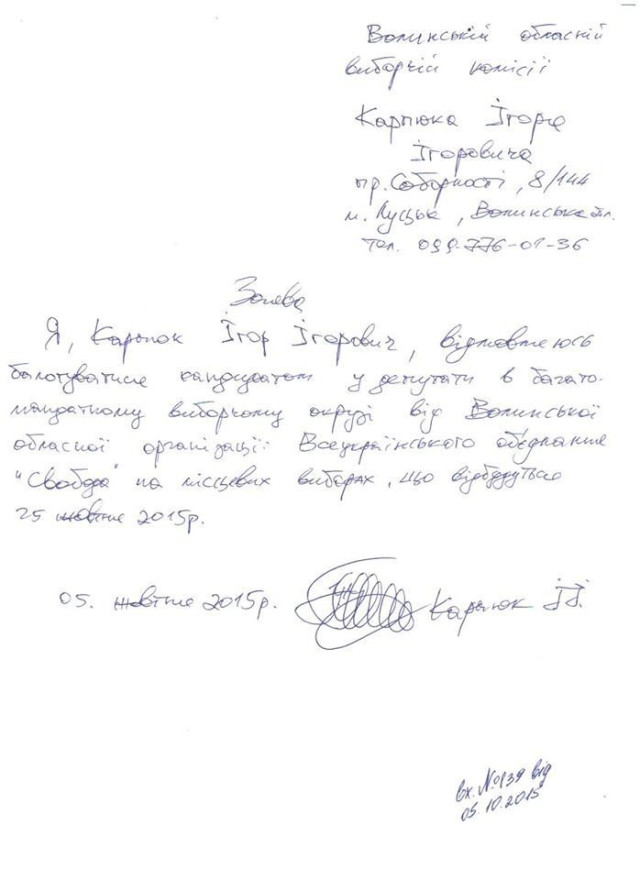 Волинській обласній
виборчій комісії
Карпюка Ігоря
Ігоровича
пр. Соборності, 8/144
м. Луцьк, Волинська обл.
тел. 099-776-01-36
Заява
Я, Карпюк Ігор Ігорович, відмовляюсь
балотуватися кандидатом у депутати в багато-
мандатному виборчому окрузі від Волинської
обласної організації Всеукраїнського об'єднання
"Свобода" на місцевих виборах, що відбудуться
25 жовтня 2015р.
05. жовтня 2015р. Карпюк І.І.
вх. №01/39 від
05.10.2015